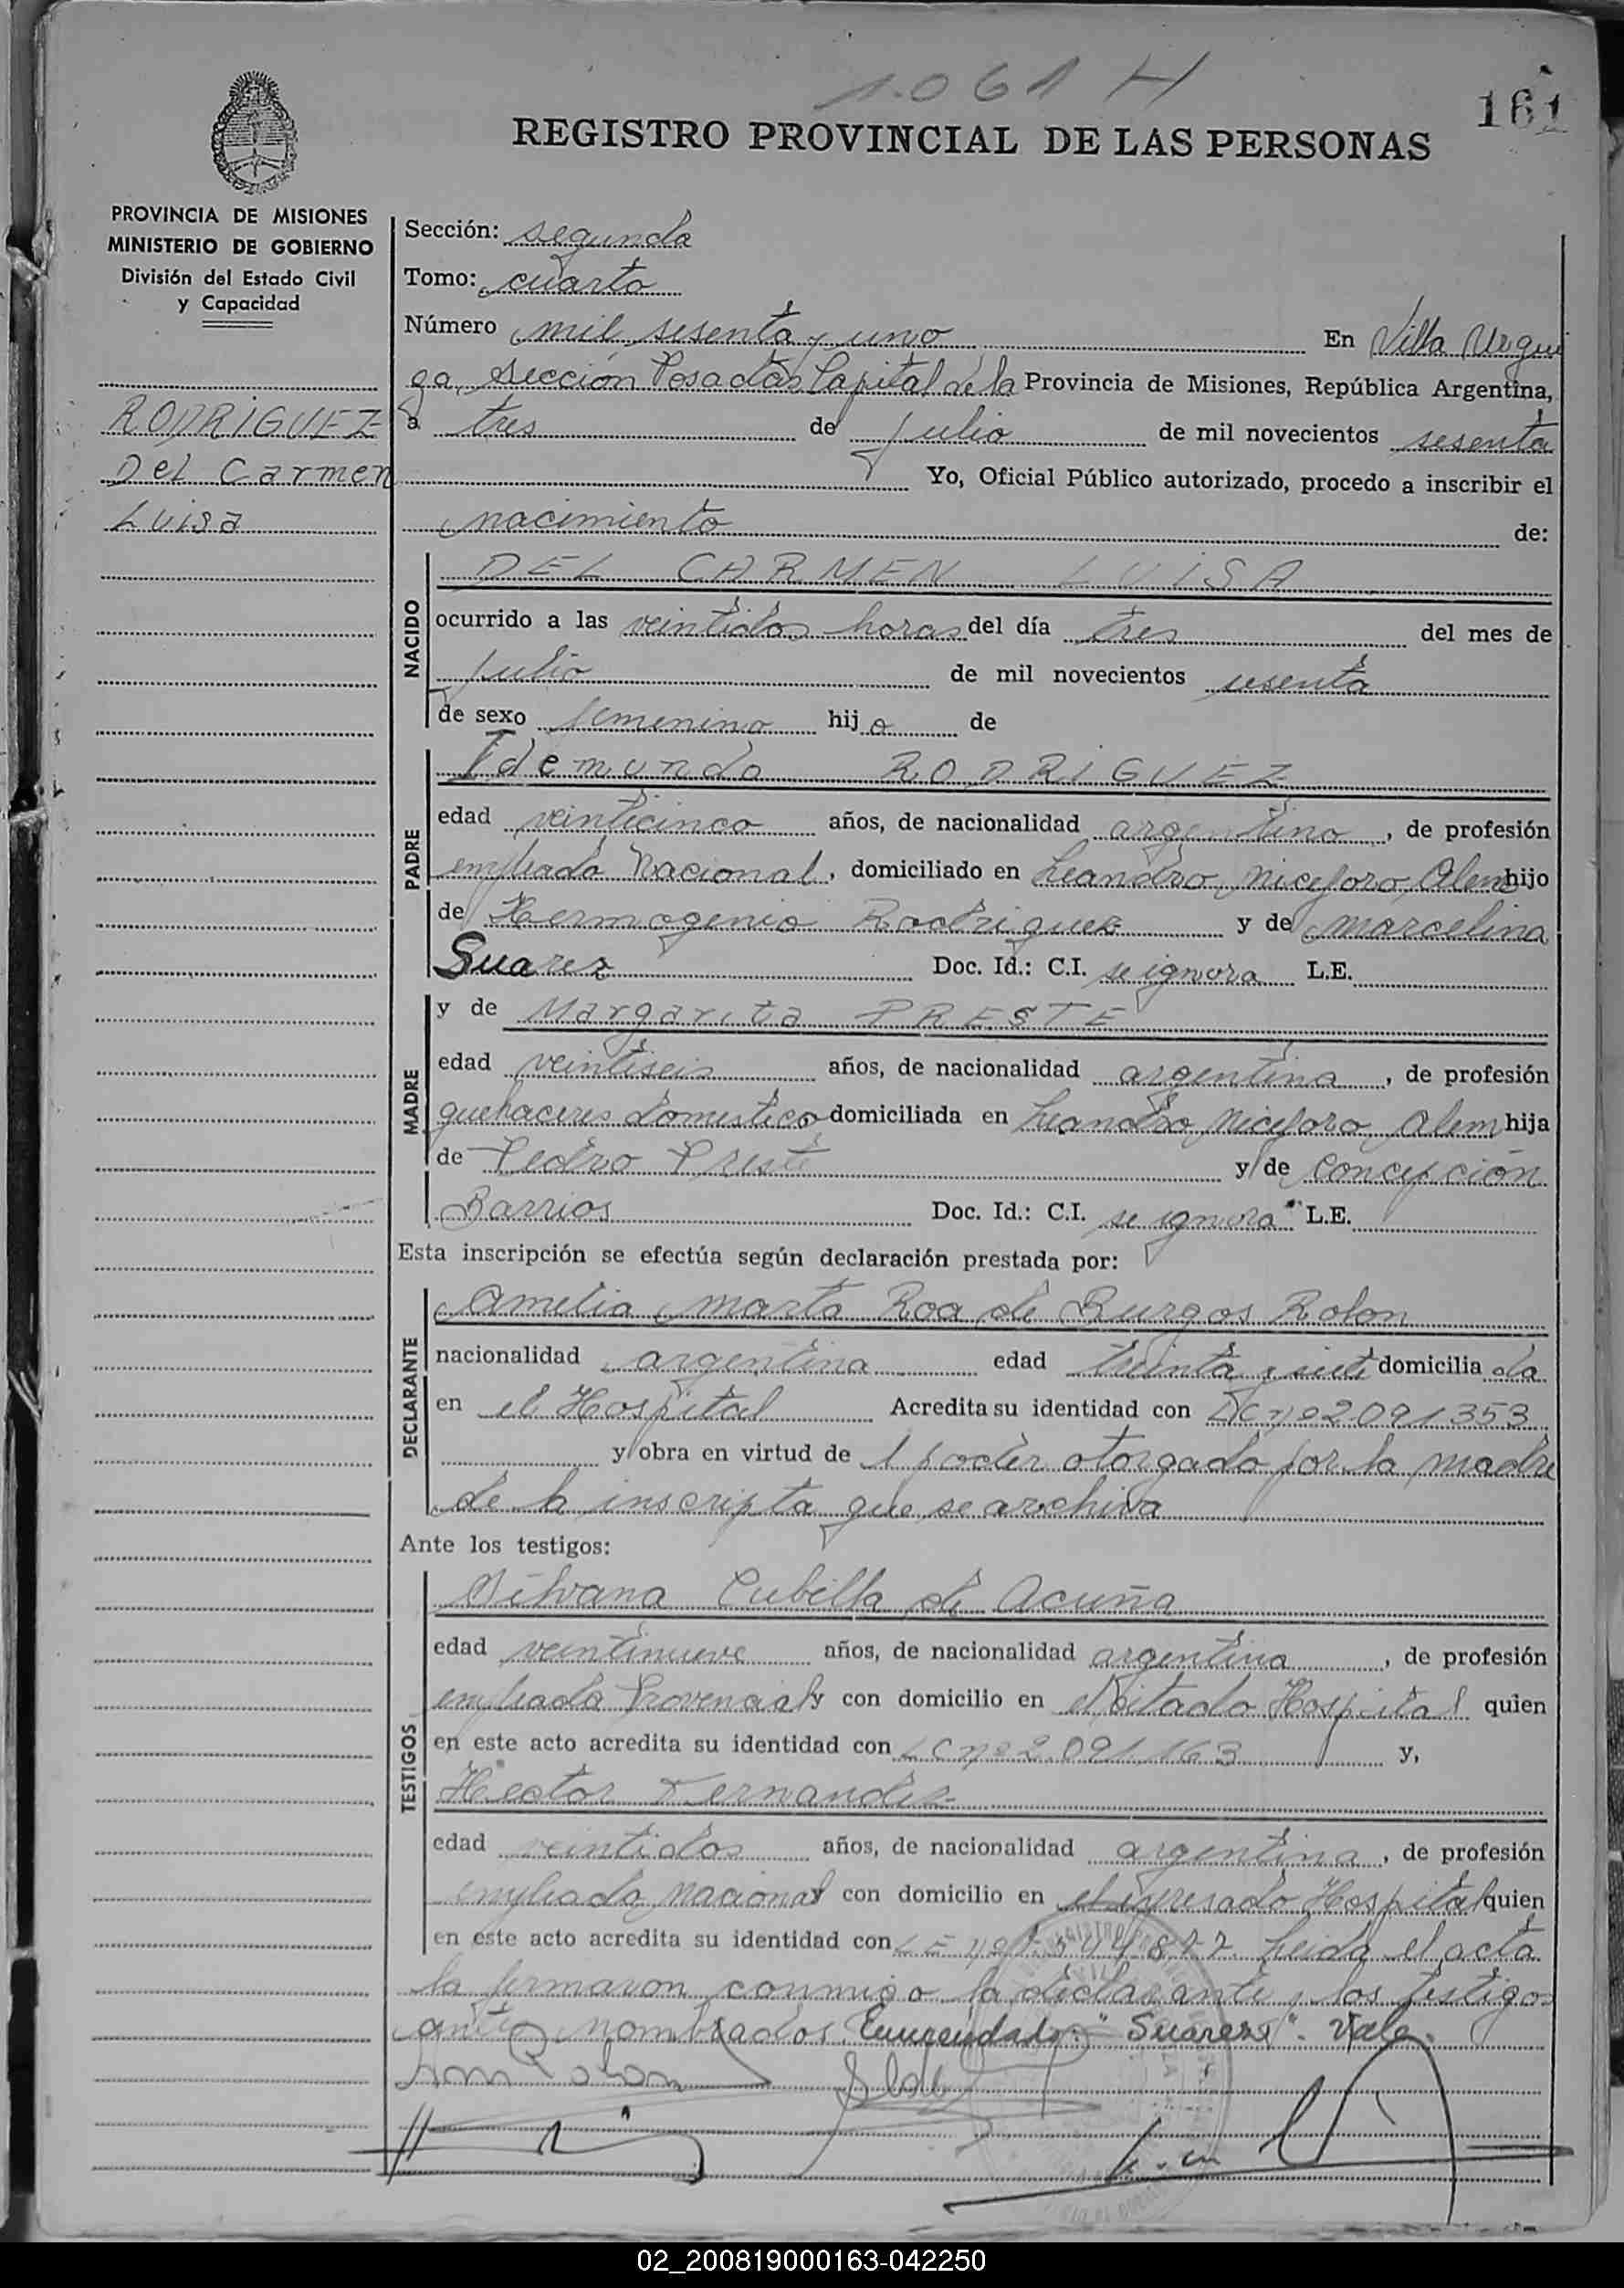 1061 H
161
REGISTRO PROVINCIAL DE LAS PERSONAS
PROVINCIA DE MISIONES
MINISTERIO DE GOBIERNO
División del Estado Civil
y Capacidad
RODRIGUEZ
Del Carmen
Luisa
Sección: segunda
Tomo: cuarto
Número mil sesenta y uno En Villa Urqui
ga, sección Posadas Capital de la Provincia de Misiones, República Argentina,
a tres de julio de mil novecientos sesenta
Yo, Oficial Público autorizado, procedo a inscribir el
nacimiento de:
NACIDO
DEL CARMEN LUISA
ocurrido a las veintidos horas del día tres del mes de
julio de mil novecientos sesenta
de sexo femenino hija de
PADRE
Idemundo RODRIGUEZ
edad veinticinco años, de nacionalidad argentino, de profesión
empleado Nacional, domiciliado en Leandro Niceforo Alem hijo
de Hermogenio Rodriguez y de Marcelina
Suarez Doc. Id.: C.I. se ignora L.E.
MADRE
y de Margarita PRESTE
edad veintiseis años, de nacionalidad argentina, de profesión
quehaceres domestico domiciliada en Leandro Niceforo Alem hija
de Pedro Preste y de Concepción
Barrios Doc. Id.: C.I. se ignora L.E.
Esta inscripción se efectúa según declaración prestada por:
DECLARANTE
Amelia Marta Roa de Burgos Rolon
nacionalidad argentina edad treinta y siete domicilia da
en el Hospital Acredita su identidad con LC nº 2091353
y obra en virtud de l poder otorgado por la madre
de la inscripta que se archiva
Ante los testigos:
TESTIGOS
Silvana Cubilla de Acuña
edad veintinueve años, de nacionalidad argentina, de profesión
empleada Provencial y con domicilio en el citado Hospital quien
en este acto acredita su identidad con LC nº 2.091.163 y,
Hector Fernandez
edad veintidos años, de nacionalidad argentina, de profesión
empleado nacional y con domicilio en el expresado Hospital quien
en este acto acredita su identidad con LE nº Leida el acta
la firmaron conmigo la declarante y los testigos
antes nombrados. Enmendado: "Suarez". Vale.
02_200819000163-042250